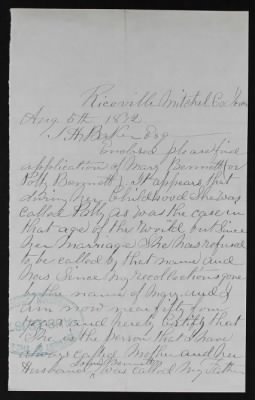 Riceville Mitchel Co Iowa
Aug 5th 1892
Enclosed please find
application of Mary Bennett or
Polly Bennett). It appears that
during her Childhood She was
called Polly as was the case in
that age of the world but since
her Marriage She has refused
to be called by that name and
has Since my recollections gone
by the name of Mary and I
am now near fifty four
years and hereby Certify that
She is the person that I have
always called Mother and her
Husband was called My Father